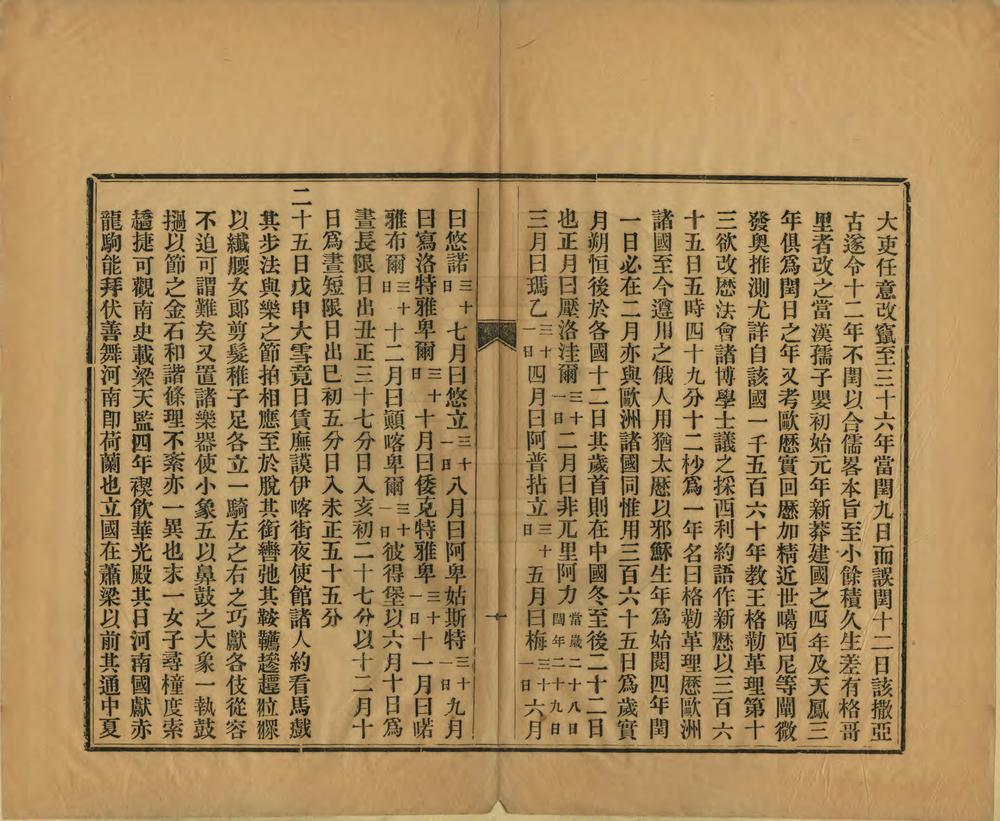 大吏任意改竄至三十六年當閏九日而誤閏十二日該撒亞
古遂令十二年不閏以合儒畧本旨至小餘積久生差有格哥
里者改之當漢孺子嬰初始元年新莽建國之四年及天鳳三
年俱爲閏日之年又考歐歴實回歴加精近世噶西尼等闡微
發奥推測尤詳自該國一千五百六十年教王格勒革理第十
三欲改歴法會諸博學士議之採西利約語作新歴以三百六
十五日五時四十九分十二秒爲一年名曰格勒革理歴歐洲
諸國至今遵用之俄人用猶太歴以邪蘇生年爲始閱四年閏
一日必在二月亦與歐洲諸國同惟用三百六十五日爲歲實
月朔恒後於各國十二日其歲首則在中國冬至後二十二日
也正月曰壓洛洼爾三十一日二月曰非兀里阿力當歲二十八日閏年二十九日
三月曰瑪乙三十一日四月曰阿普拈立三十日五月曰梅三十一日六月
曰悠諾三十日七月曰悠立三十一日八月曰阿卑姑斯特三十一日九月
曰寫洛特雅卑爾三十日十月曰倭克特雅卑三十一日十一月曰喏
雅布爾三十日十二月曰顚喀卑爾三十一日彼得堡以六月十日爲
晝長限日出丑正三十七分日入亥初二十七分以十二月十
日爲晝短限日出巳初五分日入未正五十五分
二十五日戊申大雪竟日賃廡謨伊喀街夜使館諸人約看馬戲
其步法與樂之節拍相應至於脫其銜轡弛其鞍韉
以纖腰女郞剪髮稚子足各立一騎左之右之巧獻各伎從容
不迫可謂難矣又置諸樂器使小象五以鼻鼓之大象一執鼓
撾以節之金石和諧條理不紊亦一異也末一女子尋橦度索
趫捷可觀南史載梁天監四年禊飮華光殿其日河南國獻赤
龍駒能拜伏善舞河南卽荷蘭也立國在蕭梁以前其通中夏